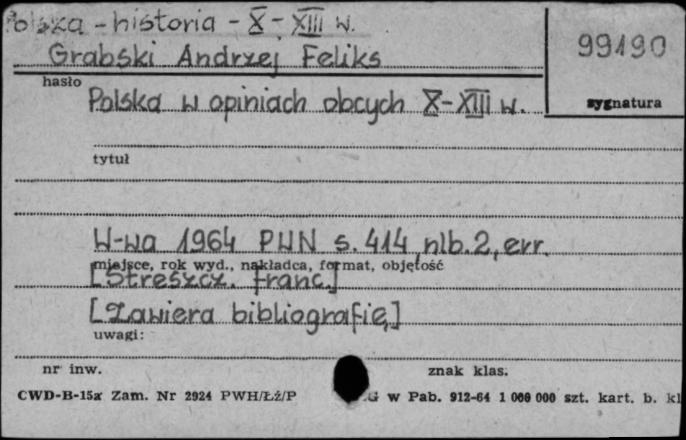 Polska - historia - X - XIII w.
Grabski Andrzej Feliks
99190
hasło
Polska w opiniach obcych X-XIII w.
sygnatura
tytuł
W-wa 1964 PWN s. 414, nlb. 2, err.
miejsce, rok wyd., nakładca, format, objętość
[Streszcz. franc.]
[Zawiera bibliografię]
uwagi:
nr inw.
znak klas.
CWD-B-15a Zam. Nr 2924 PWH/Łź/P G w Pab. 912-64 1 000 000 szt. kart. b. kl